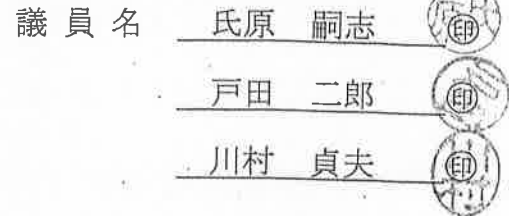 議員名 氏原 嗣志 ㊞
戸田 二郎 ㊞
川村 貞夫 ㊞